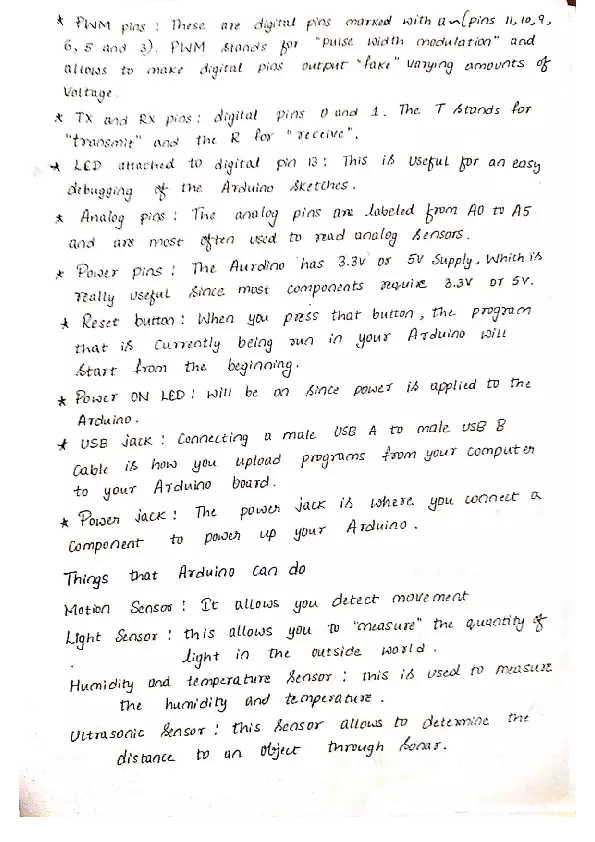 * PWM pins : These are digital pins marked with a ~ (pins 11, 10, 9,
6, 5 and 3). PWM stands for "pulse width modulation" and
allows to make digital pins output "fake" varying amounts of
Voltage.
* TX and RX pins : digital pins 0 and 1. The T stands for
"transmit" and the R for "receive".
* LED attached to digital pin 13 : This is useful for an easy
debugging of the Arduino sketches.
* Analog pins : The analog pins are labeled from A0 to A5
and are most often used to read analog sensors.
* Power pins : The Aurdino has 3.3V or 5V supply. Which is
really useful since most components require 3.3V or 5V.
* Reset button : When you press that button, the program
that is currently being run in your Arduino will
start from the beginning.
* Power ON LED : will be on since power is applied to the
Arduino.
* USB jack : Connecting a male USB A to male USB B
Cable is how you upload programs from your computer
to your Arduino board.
* Power jack : The power jack is where you connect a
component to power up your Arduino.
Things that Arduino can do
Motion Sensor : It allows you detect movement
Light Sensor : this allows you to "measure" the quantity of
light in the outside world.
Humidity and temperature sensor : This is used to measure
the humidity and temperature.
Ultrasonic sensor : this sensor allows to determine the
distance to an object through sonar.